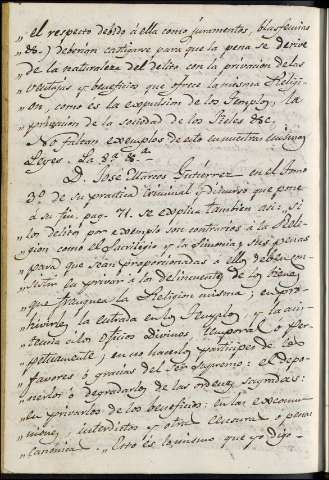 „ el respecto debido á ella como juramentos, blasfemias
„ &c.) deberían castigarse para que la pena se derive
„ de la naturaleza del delito con la privacion de las
„ ventajas y beneficios que ofrece la misma Religi-
„ on, como es la expulsion de los Templos, la
„ privacion de la sociedad de los Fieles &c.
No faltan exemplos de esto en nuestras mismas
Leyes. La 8.ª
D. José Marcos Gutierrez en el Tomo
3.º de su practica Criminal y discurso que pone
á su fin, pag. 71. se explica tambien asi: si
„ los delitos por exemplo son contrarios á la Reli-
„ gion como el Sacrilegio y la Simonia, sus penas
„ para que sean proporcionadas á ellos deben con-
„ sistir en privar á los delincuentes de los bienes
„ que franquea la Religion misma; en pro-
„ hivirle, la entrada en los Templos, y la asis-
„ tencia á los oficios Divinos, temporal ó per-
„ petuamente; en no hacerlos participes de los
„ favores ó gracias del Ser Supremo: en depo-
„ nerlos ó degradarlos de las ordenes sagradas:
„ en privarlos de los beneficios: en las excomu-
„ niones, entredichos y otra censura ó penas
„ canonica. „ Esto és lo mismo que yo digo-